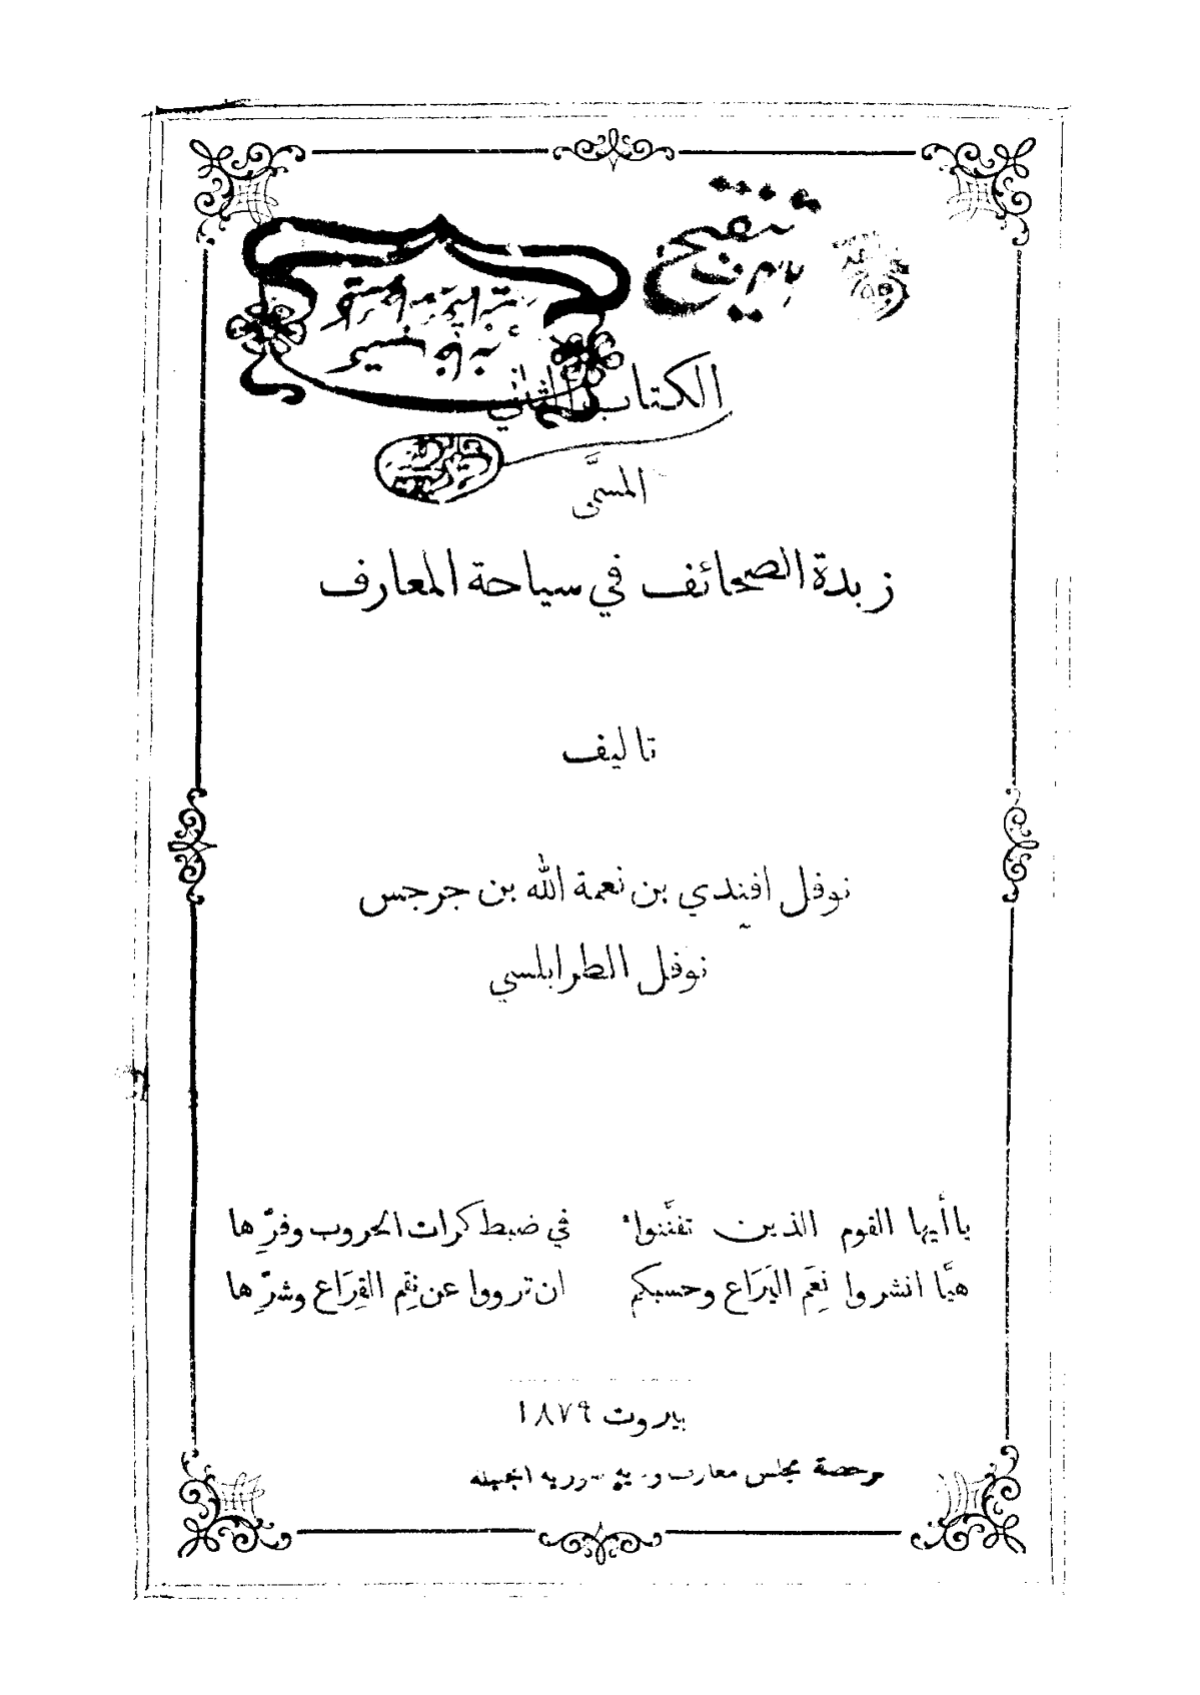 الكتاب الثاني
المسمَّى
زبدة الصحائف في سياحة المعارف
تاليف
نوفل افندي بن نعمة الله بن جرجس
نوفل الطرابلسي
ياأيها القوم الذين تفنَّنوا في ضبط كرات الحروب وفرِّها
هيَّا انشروا نِعَم اليَرَاع وحسبكم ان ترووا عن نِقَم القِرَاع وشرِّها
بيروت ١٨٧٩
برخصة مجلس معارف سورية الجليلة